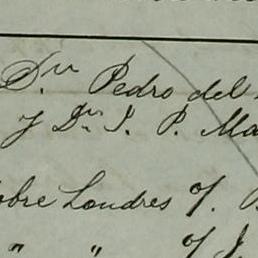 Dn Pedro del
y Dn J. P. Ma
obre Londres o/.
" " o/ J.